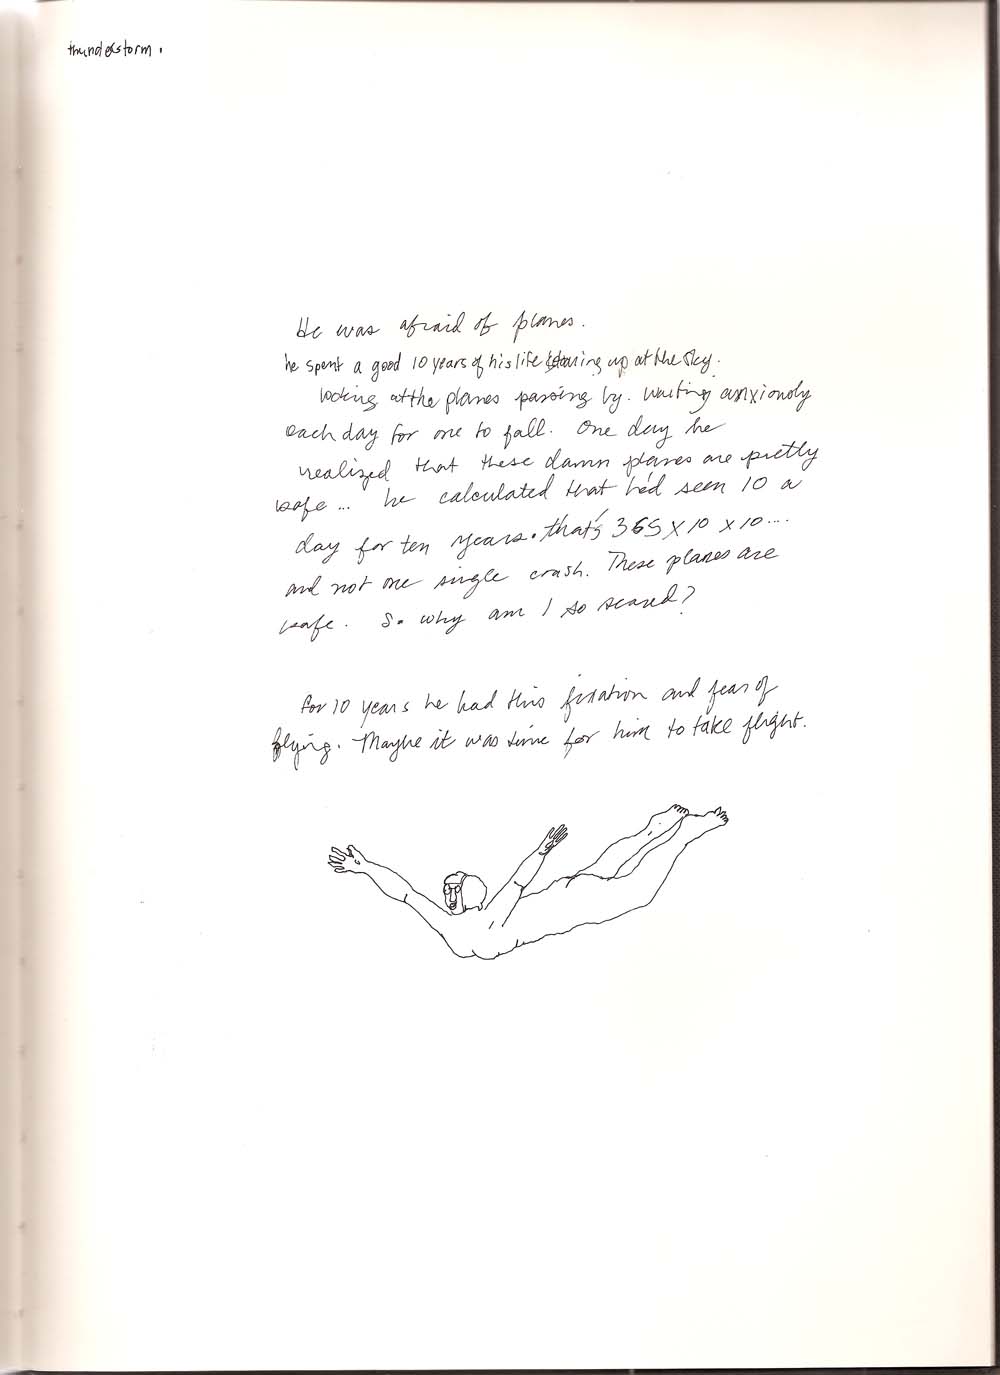 thunderstorm.
He was afraid of planes.
he spent a good 10 years of his life staring up at the sky.
looking at the planes passing by. Waiting anxiously
each day for one to fall. One day he
realized that these damn planes are pretty
safe... he calculated that he'd seen 10 a
day for ten years. that's 365 x 10 x 10....
and not one single crash. These planes are
safe. So why am I so scared?
for 10 years he had this fixation and fear of
flying. Maybe it was time for him to take flight.